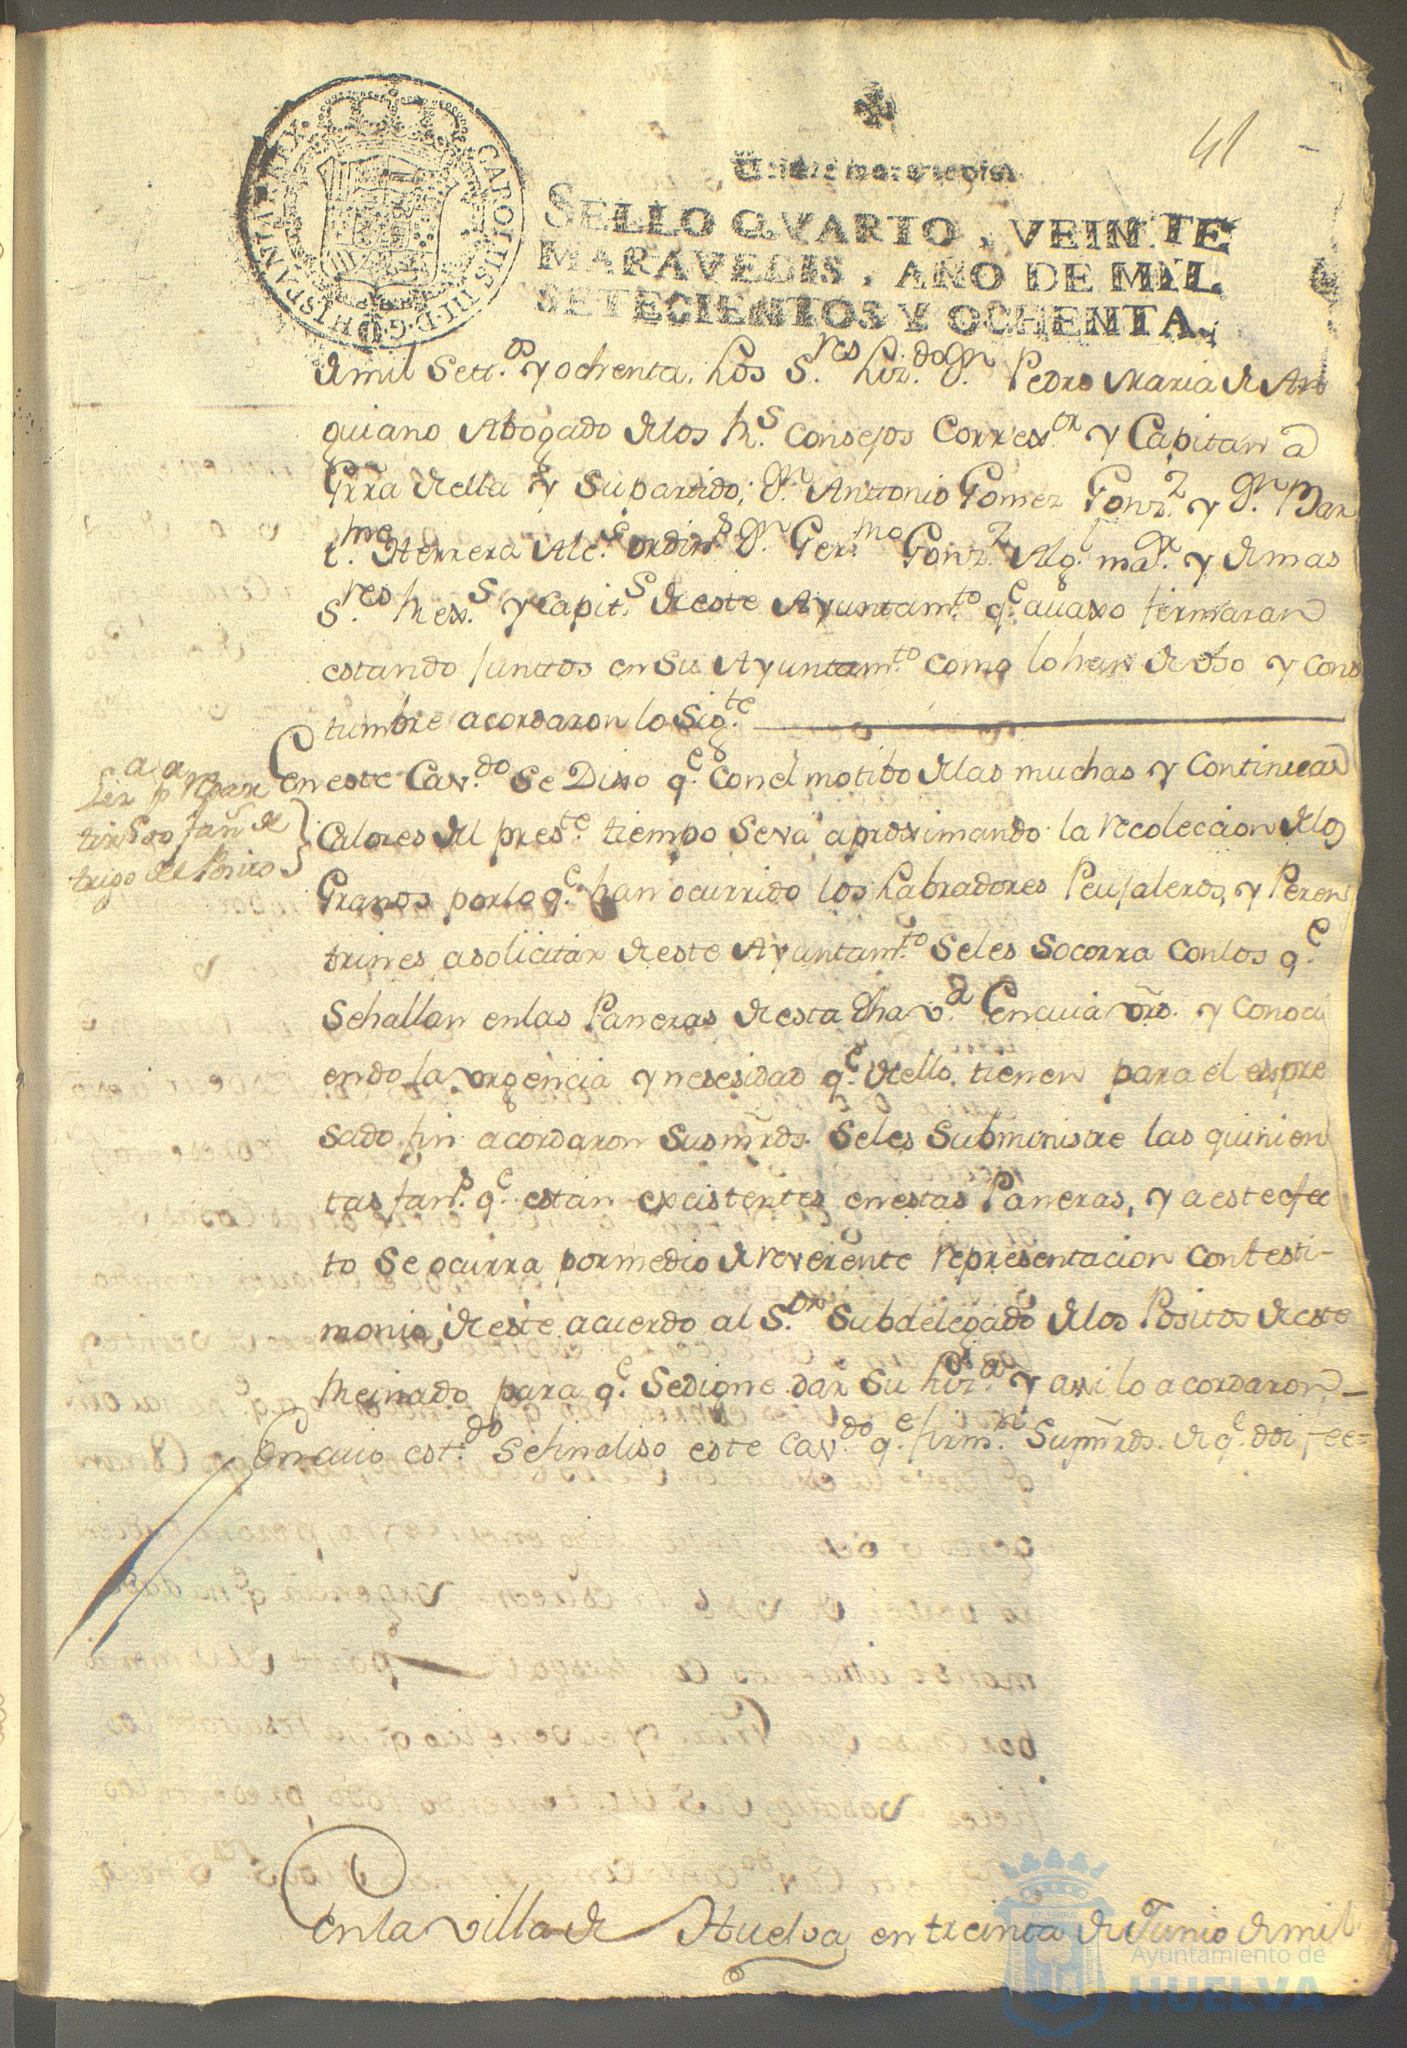 41
Veinte maravedis
SELLO QVARTO, VEINTE
MARAVEDIS, AÑO DE MIL
SETECIENTOS Y OCHENTA.
CAROLUS III D G HISPANIAR REX
de mil Sett.os y ochenta, los S.res Liz.do D.n Pedro Maria de An
guiano Abogado de los R.s Consejos Correx.or y Capitan a
Grra de ella y su partido; D.n Anttonio Gomez Gonz.z y D.n Bar
t.me Herrera Alc.s ordin.s D.n Ger.mo Gonz.z Alg.l ma.or y demas
S.res Rex.s y Capit.s de este Ayuntam.to q.e avaxo firmaran
estando junttos en su Ayuntam.to como lo han de vso y cons
tumbre acordaron lo sig.te
Liz.a p.a repar
tir 500 fan.s de
trigo del Posito
En este Cav.do se Dixo q.e con el motibo de las muchas y continuas
Calores del pres.te tiempo se va aproximando la recoleccion de los
Granos por lo q.e han ocurrido los Labradores Peujaleros, y Peren
trines a solicitar de este Ayuntam.to se les socorra con los q.e
se hallan en las Paneras de esta dha v.a En cuia vrd. y conoci
endo la vrgencia y nesesidad q.e de ello tienen para el expre
sado fin acordaron sus mrds. se les subministre las quinien
tas fan.s q.e estan existentes en estas Paneras, y a este efec
to se ocurra por medio de reverente representacion con testi-
monio de este acuerdo al S.or Subdelegado de los Positos de este
Reinado para q.e se digne dar su liz.a y asi lo acordaron,
En cuio est.do se finaliso este Cav.do q.e firm.n sus mrds. de q.e doi fee=
En la villa de Huelva en treinta de Junio de mil
Ayuntamiento de
HUELVA